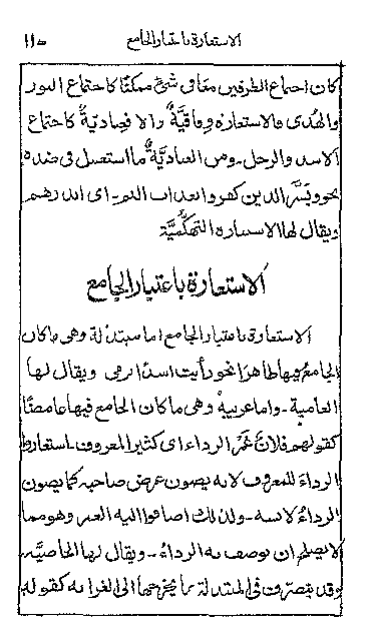 الاستعارة باعتبار الجامع ١١
كان اجتماع الطرفين معًا فى شئٍ ممكنًا كاجتماع النور
والهُدى فالاستعارة وِفاقيَّةٌ والا فعِناديّةٌ كاجتماع
الاسد والرجل ـ ومن العناديَّةِ ما استعمل فى ضده
نحو وبَشّر الذين كفروا بعذاب اليم ـ اى انذرهم
ويقال لها الاستعارة التهكّميَّة
الاستعارة باعتبار الجامع
الاستعارة باعتبار الجامع اما مبتذلة وهى ما كان
الجامعُ فيها ظاهرًا نحو رأيت اسدًا يرمى ويقال لها
العامية ـ واما غريبة وهى ما كان الجامع فيها غامضًا
كقولهم فلانٌ غَمْرُ الرداء اى كثير المعروف ـ استعاروا
الرداءَ للمعروف لانه يصون عِرض صاحبه كما يصون
الرداءُ لابسه ـ ولذلك اضافوا اليه الغمر وهو مما
لا يصلح ان يوصف به الرداءُ ـ ويقال لها الخاصيَّة
وقد يتصرّف فى المبتذلة بما يخرجها الى الغرابة كقوله